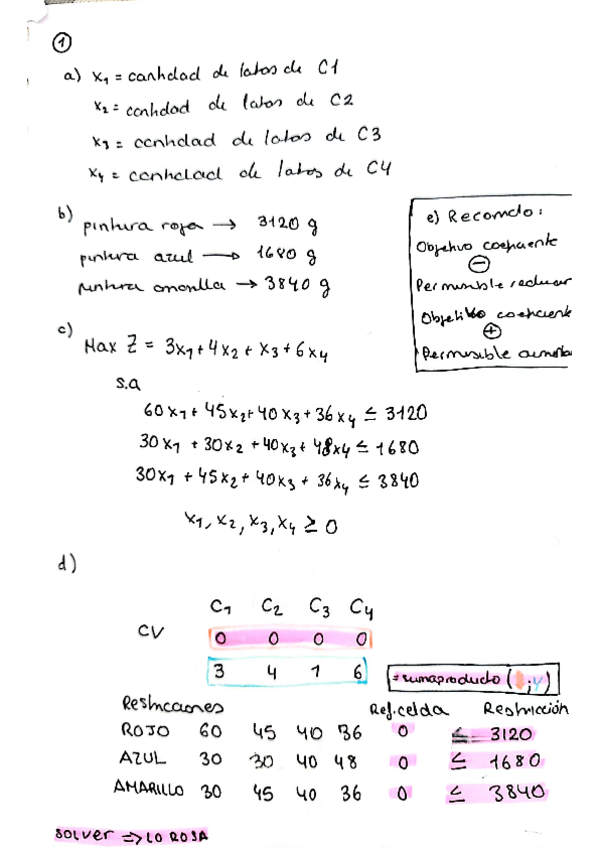 1
a) x1 = cantidad de latas de C1
x2 = cantidad de latas de C2
x3 = cantidad de latas de C3
x4 = cantidad de latas de C4
b)
pintura roja → 3120 g
pintura azul → 1680 g
pintura amarilla → 3840 g
e) Recomdo:
Objetivo coeficiente
⊖
Permisible reducir
Objetivo coeficiente
⊕
Permisible aumentar
c)
Max Z = 3x1 + 4x2 + x3 + 6x4
s.a
60x1 + 45x2 + 40x3 + 36x4 ≤ 3120
30x1 + 30x2 + 40x3 + 48x4 ≤ 1680
30x1 + 45x2 + 40x3 + 36x4 ≤ 3840
x1, x2, x3, x4 ≥ 0
d)
C1 C2 C3 C4
CV 0 0 0 0
3 4 1 6 =sumaproducto( ; )
Restricciones Ref.celda Restricción
ROJO 60 45 40 36 0 ≤ 3120
AZUL 30 30 40 48 0 ≤ 1680
AMARILLO 30 45 40 36 0 ≤ 3840
SOLVER ⇒ LO ROSA